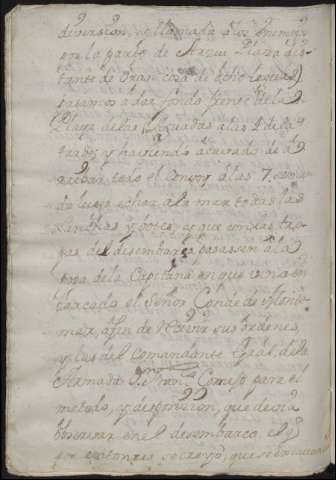 diversion, o llamada a los enemigos
en la parte de Arzeu Plaza dis-
tante de Oran cosa de ocho leguas,
pasamos a dar fondo frente de la
Playa de las Aguadas a las 4 de la
tarde, y haviendo acavado de
todo el Comvoy a las 7,
luego echar a la mar todas las
Lanchas y botes, y que con las tro-
pas del desembarco pasassen a la
popa de la Capitana en que venia en-
barcado el Señor Conde de Monte-
mar, a fin de recivir sus ordenes,
y las del Comandante Gral. de la
Armada Dn. Franco. Cornejo para el
metodo, y disposicion, que devia
observarse en el desembarco el qe.
por entonces se creyó, que se executaria